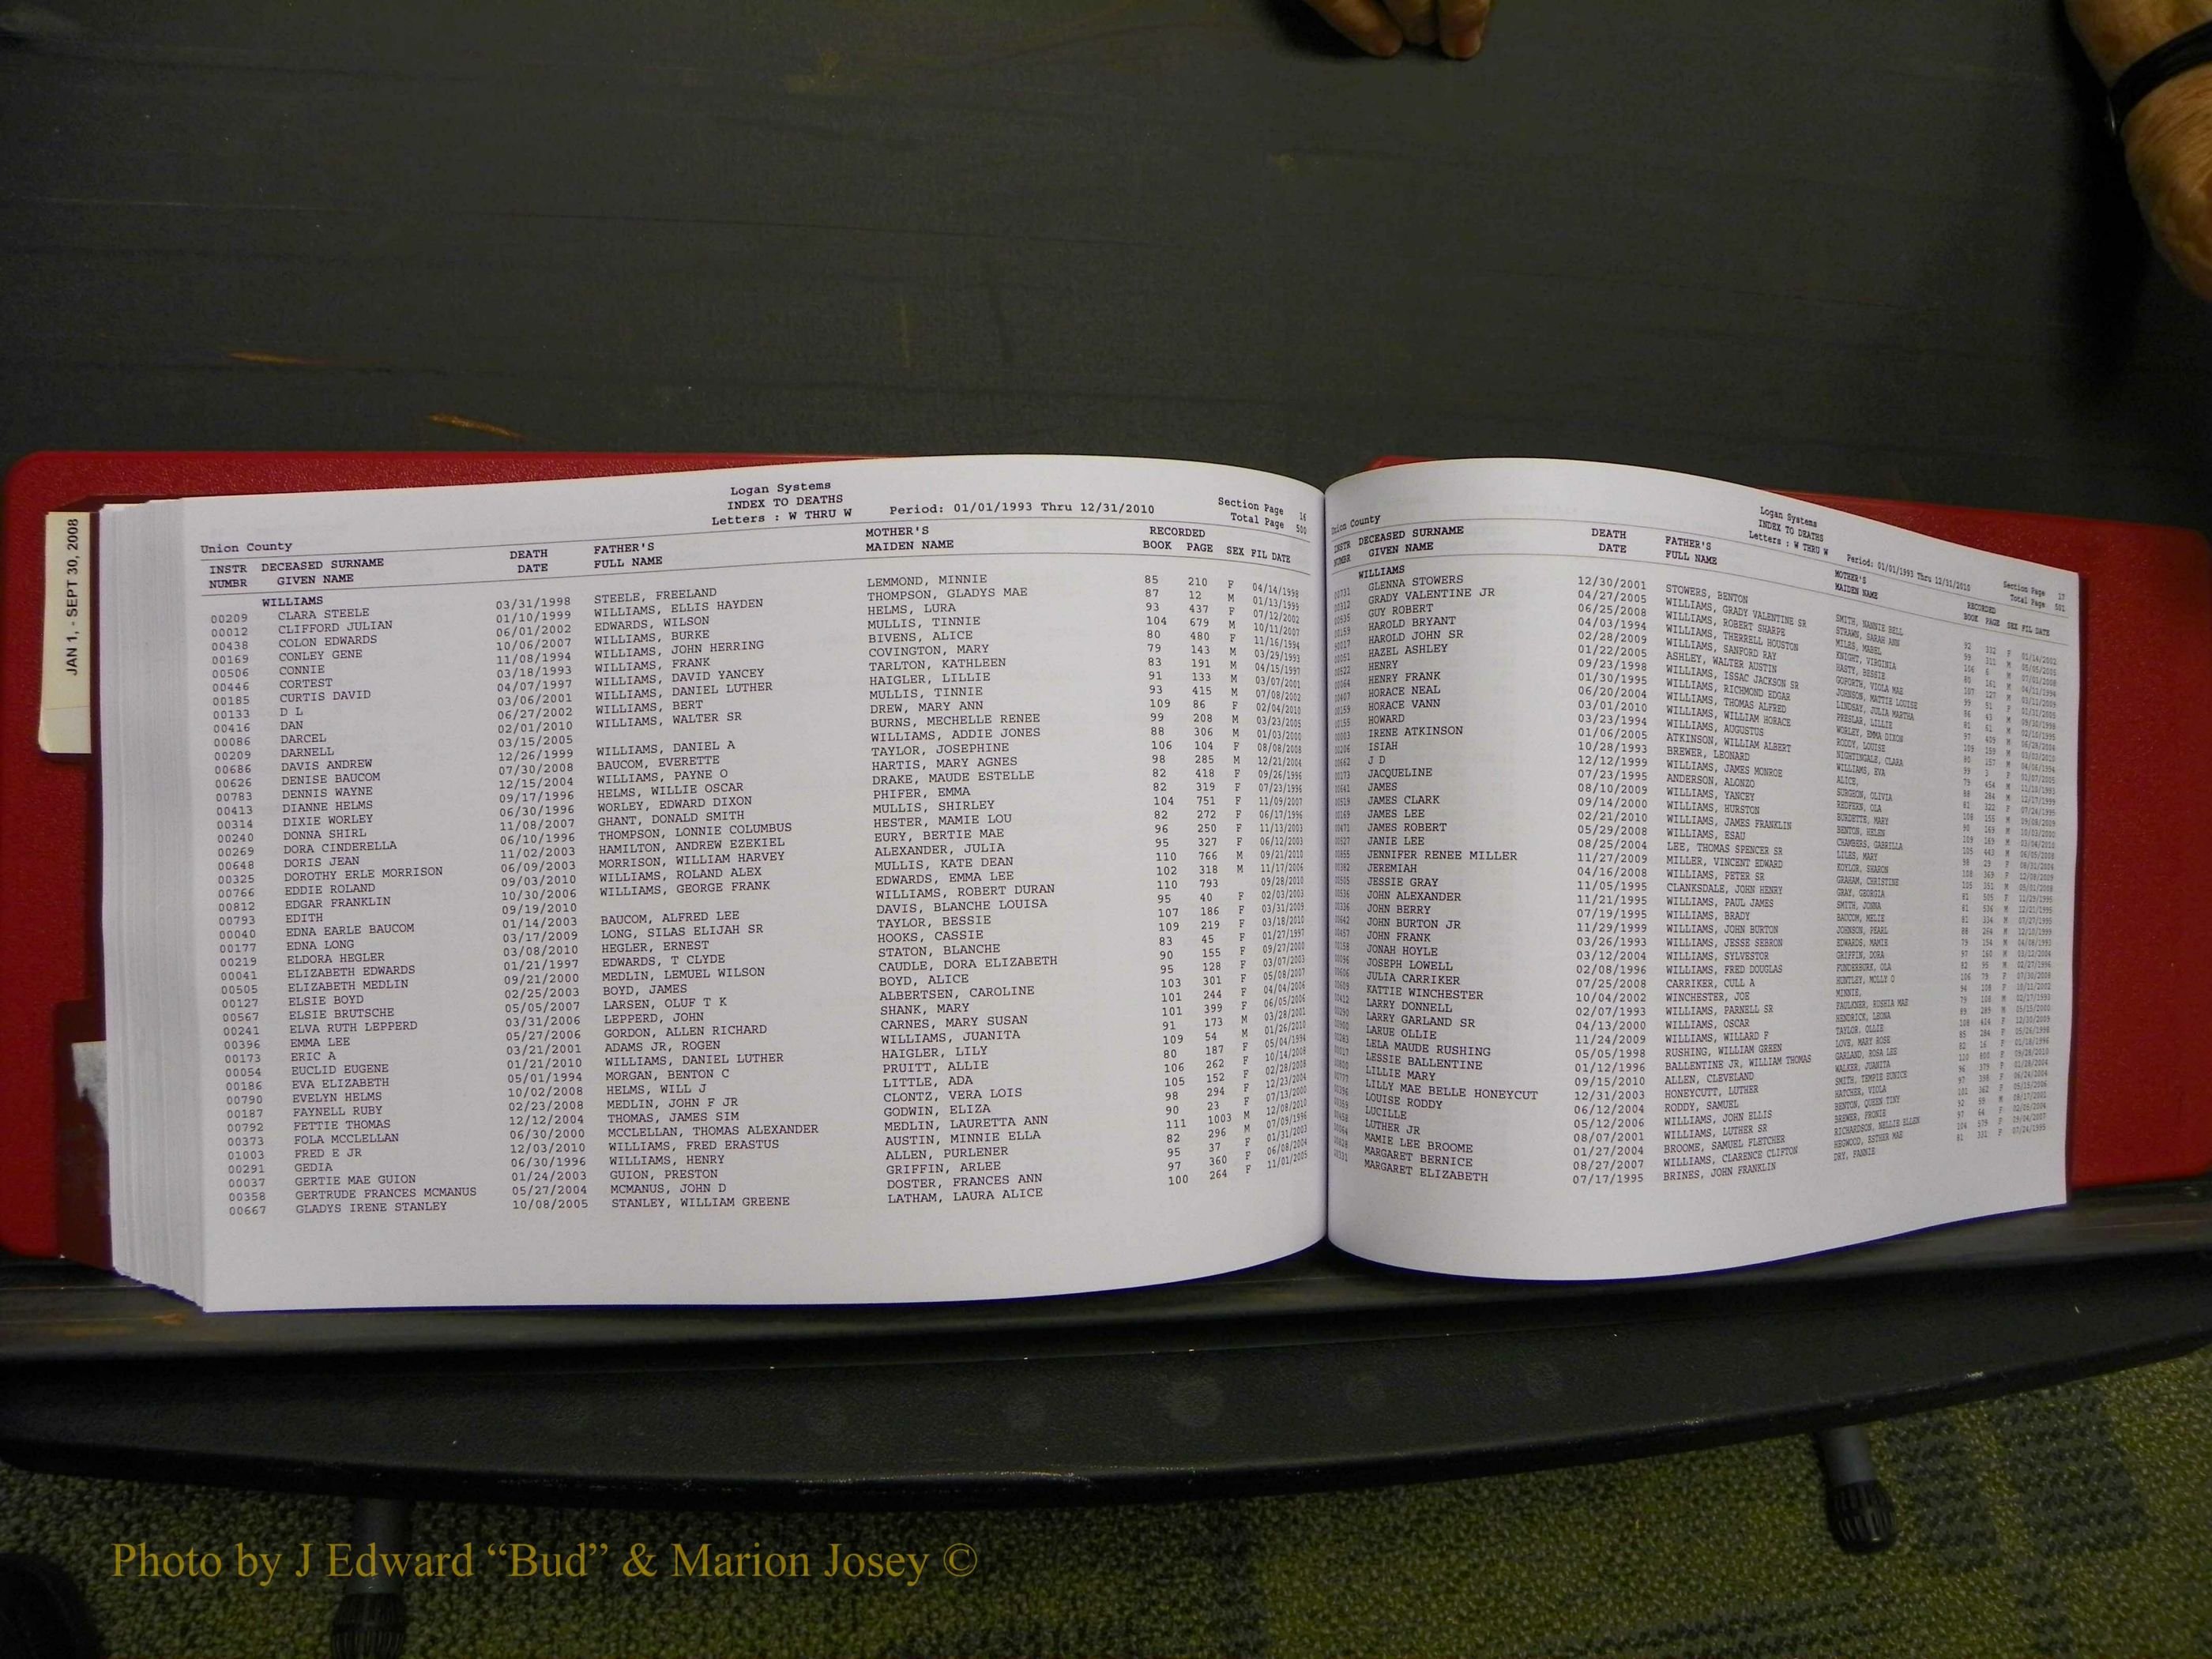 JAN 1, - SEPT 30, 2008
Logan Systems
INDEX TO DEATHS
Letters : W THRU W Period: 01/01/1993 Thru 12/31/2010
Section Page 16
Total Page 500
Union County
INSTR DECEASED SURNAME DEATH FATHER'S MOTHER'S RECORDED
NUMBR GIVEN NAME DATE FULL NAME MAIDEN NAME BOOK PAGE SEX FIL DATE
WILLIAMS
00209 CLARA STEELE 03/31/1998 STEELE, FREELAND LEMMOND, MINNIE 85 210 F 04/14/1998
00012 CLIFFORD JULIAN 01/10/1999 WILLIAMS, ELLIS HAYDEN THOMPSON, GLADYS MAE 87 12 M 01/13/1999
00438 COLON EDWARDS 06/01/2002 EDWARDS, WILSON HELMS, LURA 93 437 F 07/12/2002
00169 CONLEY GENE 10/06/2007 WILLIAMS, BURKE MULLIS, TINNIE 104 679 M 10/11/2007
00506 CONNIE 11/08/1994 WILLIAMS, JOHN HERRING BIVENS, ALICE 80 480 F 11/16/1994
00446 CORTEST 03/18/1993 WILLIAMS, FRANK COVINGTON, MARY 79 143 M 03/29/1993
00185 CURTIS DAVID 04/07/1997 WILLIAMS, DAVID YANCEY TARLTON, KATHLEEN 83 191 M 04/15/1997
00133 D L 03/06/2001 WILLIAMS, DANIEL LUTHER HAIGLER, LILLIE 91 133 M 03/07/2001
00416 DAN 06/27/2002 WILLIAMS, BERT MULLIS, TINNIE 93 415 M 07/08/2002
00086 DARCEL 02/01/2010 WILLIAMS, WALTER SR DREW, MARY ANN 109 86 F 02/04/2010
00209 DARNELL 03/15/2005 BURNS, MECHELLE RENEE 99 208 M 03/23/2005
00686 DAVIS ANDREW 12/26/1999 WILLIAMS, DANIEL A WILLIAMS, ADDIE JONES 88 306 M 01/03/2000
00626 DENISE BAUCOM 07/30/2008 BAUCOM, EVERETTE TAYLOR, JOSEPHINE 106 104 F 08/08/2008
00783 DENNIS WAYNE 12/15/2004 WILLIAMS, PAYNE O HARTIS, MARY AGNES 98 285 M 12/21/2004
00413 DIANNE HELMS 09/17/1996 HELMS, WILLIE OSCAR DRAKE, MAUDE ESTELLE 82 418 F 09/26/1996
00314 DIXIE WORLEY 06/30/1996 WORLEY, EDWARD DIXON PHIFER, EMMA 82 319 F 07/23/1996
00240 DONNA SHIRL 11/08/2007 GHANT, DONALD SMITH MULLIS, SHIRLEY 104 751 F 11/09/2007
00269 DORA CINDERELLA 06/10/1996 THOMPSON, LONNIE COLUMBUS HESTER, MAMIE LOU 82 272 F 06/17/1996
00648 DORIS JEAN 11/02/2003 HAMILTON, ANDREW EZEKIEL EURY, BERTIE MAE 96 250 F 11/13/2003
00325 DOROTHY ERLE MORRISON 06/09/2003 MORRISON, WILLIAM HARVEY ALEXANDER, JULIA 95 327 F 06/12/2003
00766 EDDIE ROLAND 09/03/2010 WILLIAMS, ROLAND ALEX MULLIS, KATE DEAN 110 766 M 09/21/2010
00812 EDGAR FRANKLIN 10/30/2006 WILLIAMS, GEORGE FRANK EDWARDS, EMMA LEE 102 318 M 11/17/2006
00793 EDITH 09/19/2010 WILLIAMS, ROBERT DURAN 110 793 09/28/2010
00040 EDNA EARLE BAUCOM 01/14/2003 BAUCOM, ALFRED LEE DAVIS, BLANCHE LOUISA 95 40 F 02/03/2003
00177 EDNA LONG 03/17/2009 LONG, SILAS ELIJAH SR TAYLOR, BESSIE 107 186 F 03/31/2009
00219 ELDORA HEGLER 03/08/2010 HEGLER, ERNEST HOOKS, CASSIE 109 219 F 03/18/2010
00041 ELIZABETH EDWARDS 01/21/1997 EDWARDS, T CLYDE STATON, BLANCHE 83 45 F 01/27/1997
00505 ELIZABETH MEDLIN 09/21/2000 MEDLIN, LEMUEL WILSON CAUDLE, DORA ELIZABETH 90 155 F 09/27/2000
00127 ELSIE BOYD 02/25/2003 BOYD, JAMES BOYD, ALICE 95 128 F 03/07/2003
00567 ELSIE BRUTSCHE 05/05/2007 LARSEN, OLUF T K ALBERTSEN, CAROLINE 103 301 F 05/08/2007
00241 ELVA RUTH LEPPERD 03/31/2006 LEPPERD, JOHN SHANK, MARY 101 244 F 04/04/2006
00396 EMMA LEE 05/27/2006 GORDON, ALLEN RICHARD CARNES, MARY SUSAN 101 399 F 06/05/2006
00173 ERIC A 03/21/2001 ADAMS JR, ROGEN WILLIAMS, JUANITA 91 173 M 03/28/2001
00054 EUCLID EUGENE 01/21/2010 WILLIAMS, DANIEL LUTHER HAIGLER, LILY 109 54 M 01/26/2010
00186 EVA ELIZABETH 05/01/1994 MORGAN, BENTON C PRUITT, ALLIE 80 187 F 05/04/1994
00790 EVELYN HELMS 10/02/2008 HELMS, WILL J LITTLE, ADA 106 262 F 10/14/2008
00187 FAYNELL RUBY 02/23/2008 MEDLIN, JOHN F JR CLONTZ, VERA LOIS 105 152 F 02/28/2008
00792 FETTIE THOMAS 12/12/2004 THOMAS, JAMES SIM GODWIN, ELIZA 98 294 F 12/23/2004
00373 FOLA MCCLELLAN 06/30/2000 MCCLELLAN, THOMAS ALEXANDER MEDLIN, LAURETTA ANN 90 23 F 07/13/2000
01003 FRED E JR 12/03/2010 WILLIAMS, FRED ERASTUS AUSTIN, MINNIE ELLA 111 1003 M 12/08/2010
00291 GEDIA 06/30/1996 WILLIAMS, HENRY ALLEN, PURLENER 82 296 M 07/09/1996
00037 GERTIE MAE GUION 01/24/2003 GUION, PRESTON GRIFFIN, ARLEE 95 37 F 01/31/2003
00358 GERTRUDE FRANCES MCMANUS 05/27/2004 MCMANUS, JOHN D DOSTER, FRANCES ANN 97 360 F 06/08/2004
00667 GLADYS IRENE STANLEY 10/08/2005 STANLEY, WILLIAM GREENE LATHAM, LAURA ALICE 100 264 F 11/01/2005
Logan Systems
INDEX TO DEATHS
Letters : W THRU W Period: 01/01/1993 Thru 12/31/2010
Section Page 17
Total Page 501
Union County
INSTR DECEASED SURNAME DEATH FATHER'S MOTHER'S RECORDED
NUMBR GIVEN NAME DATE FULL NAME MAIDEN NAME BOOK PAGE SEX FIL DATE
WILLIAMS
GLENNA STOWERS 12/30/2001 STOWERS, BENTON SMITH, NANNIE BELL
GRADY VALENTINE JR 04/27/2005 WILLIAMS, GRADY VALENTINE SR STRAWN, SARAH ANN
GUY ROBERT 06/25/2008 WILLIAMS, ROBERT SHARPE MILES, MABEL
HAROLD BRYANT 04/03/1994 WILLIAMS, THERRELL HOUSTON KNIGHT, VIRGINIA
HAROLD JOHN SR 02/28/2009 WILLIAMS, SANFORD RAY HASTY, BESSIE
HAZEL ASHLEY 01/22/2005 ASHLEY, WALTER AUSTIN GOFORTH, VIOLA MAE
HENRY 09/23/1998 WILLIAMS, ISSAC JACKSON SR JOHNSON, MATTIE LOUISE
HENRY FRANK 01/30/1995 WILLIAMS, RICHMOND EDGAR LINDSAY, JULIA MARTHA
HORACE NEAL 06/20/2004 WILLIAMS, THOMAS ALFRED PRESLAR, LILLIE
HORACE VANN 03/01/2010 WILLIAMS, WILLIAM HORACE WORLEY, EMMA DIXON
HOWARD 03/23/1994 WILLIAMS, AUGUSTUS RODDY, LOUISE
IRENE ATKINSON 01/06/2005 ATKINSON, WILLIAM ALBERT NIGHTINGALE, CLARA
ISIAH 10/28/1993 BREWER, LEONARD WILLIAMS, EVA
J D 12/12/1999 WILLIAMS, JAMES MONROE ALICE,
JACQUELINE 07/23/1995 ANDERSON, ALONZO SURGEON, OLIVIA
JAMES 08/10/2009 WILLIAMS, YANCEY REDFERN, OLA
JAMES CLARK 09/14/2000 WILLIAMS, HURSTON BURDETTE, MARY
JAMES LEE 02/21/2010 WILLIAMS, JAMES FRANKLIN BENTON, HELEN
JAMES ROBERT 05/29/2008 WILLIAMS, ESAU CHAMBERS, GABRILLA
JANIE LEE 08/25/2004 LEE, THOMAS SPENCER SR LILES, MARY
JENNIFER RENEE MILLER 11/27/2009 MILLER, VINCENT EDWARD KOYLOR, SHARON
JEREMIAH 04/16/2008 WILLIAMS, PETER SR GRAHAM, CHRISTINE
JESSIE GRAY 11/05/1995 CLANKSDALE, JOHN HENRY GRAY, GEORGIA
JOHN ALEXANDER 11/21/1995 WILLIAMS, PAUL JAMES SMITH, JONNA
JOHN BERRY 07/19/1995 WILLIAMS, BRADY BAUCOM, MELIE
JOHN BURTON JR 11/29/1999 WILLIAMS, JOHN BURTON JOHNSON, PEARL
JOHN FRANK 03/26/1993 WILLIAMS, JESSE SEBRON EDWARDS, MAMIE
JONAH HOYLE 03/12/2004 WILLIAMS, SYLVESTOR GRIFFIN, DORA
JOSEPH LOWELL 02/08/1996 WILLIAMS, FRED DOUGLAS FUNDERBURK, OLA
JULIA CARRIKER 07/25/2008 CARRIKER, CULL A HUNTLEY, MOLLY O
KATTIE WINCHESTER 10/04/2002 WINCHESTER, JOE MINNIE,
LARRY DONNELL 02/07/1993 WILLIAMS, PARNELL SR FAULKNER, RUSHIA MAE
LARRY GARLAND SR 04/13/2000 WILLIAMS, OSCAR HENDRICK, LEONA
LARUE OLLIE 11/24/2009 WILLIAMS, WILLARD F TAYLOR, OLLIE
LELA MAUDE RUSHING 05/05/1998 RUSHING, WILLIAM GREEN LOVE, MARY ROSE
LESSIE BALLENTINE 01/12/1996 BALLENTINE JR, WILLIAM THOMAS GARLAND, ROSA LEE
LILLIE MARY 09/15/2010 ALLEN, CLEVELAND WALKER, JUANITA
LILLY MAE BELLE HONEYCUT 12/31/2003 HONEYCUTT, LUTHER SMITH, TEMPIE EUNICE
LOUISE RODDY 06/12/2004 RODDY, SAMUEL HATCHER, VIOLA
LUCILLE 05/12/2006 WILLIAMS, JOHN ELLIS BENTON, QUEEN TINY
LUTHER JR 08/07/2001 WILLIAMS, LUTHER SR BREWER, FRONIE
MAMIE LEE BROOME 01/27/2004 BROOME, SAMUEL FLETCHER RICHARDSON, NELLIE ELLEN
MARGARET BERNICE 08/27/2007 WILLIAMS, CLARENCE CLIFTON HEGWOOD, ESTHER MAE
MARGARET ELIZABETH 07/17/1995 BRINES, JOHN FRANKLIN DRY, FANNIE
Photo by J Edward “Bud” & Marion Josey ©